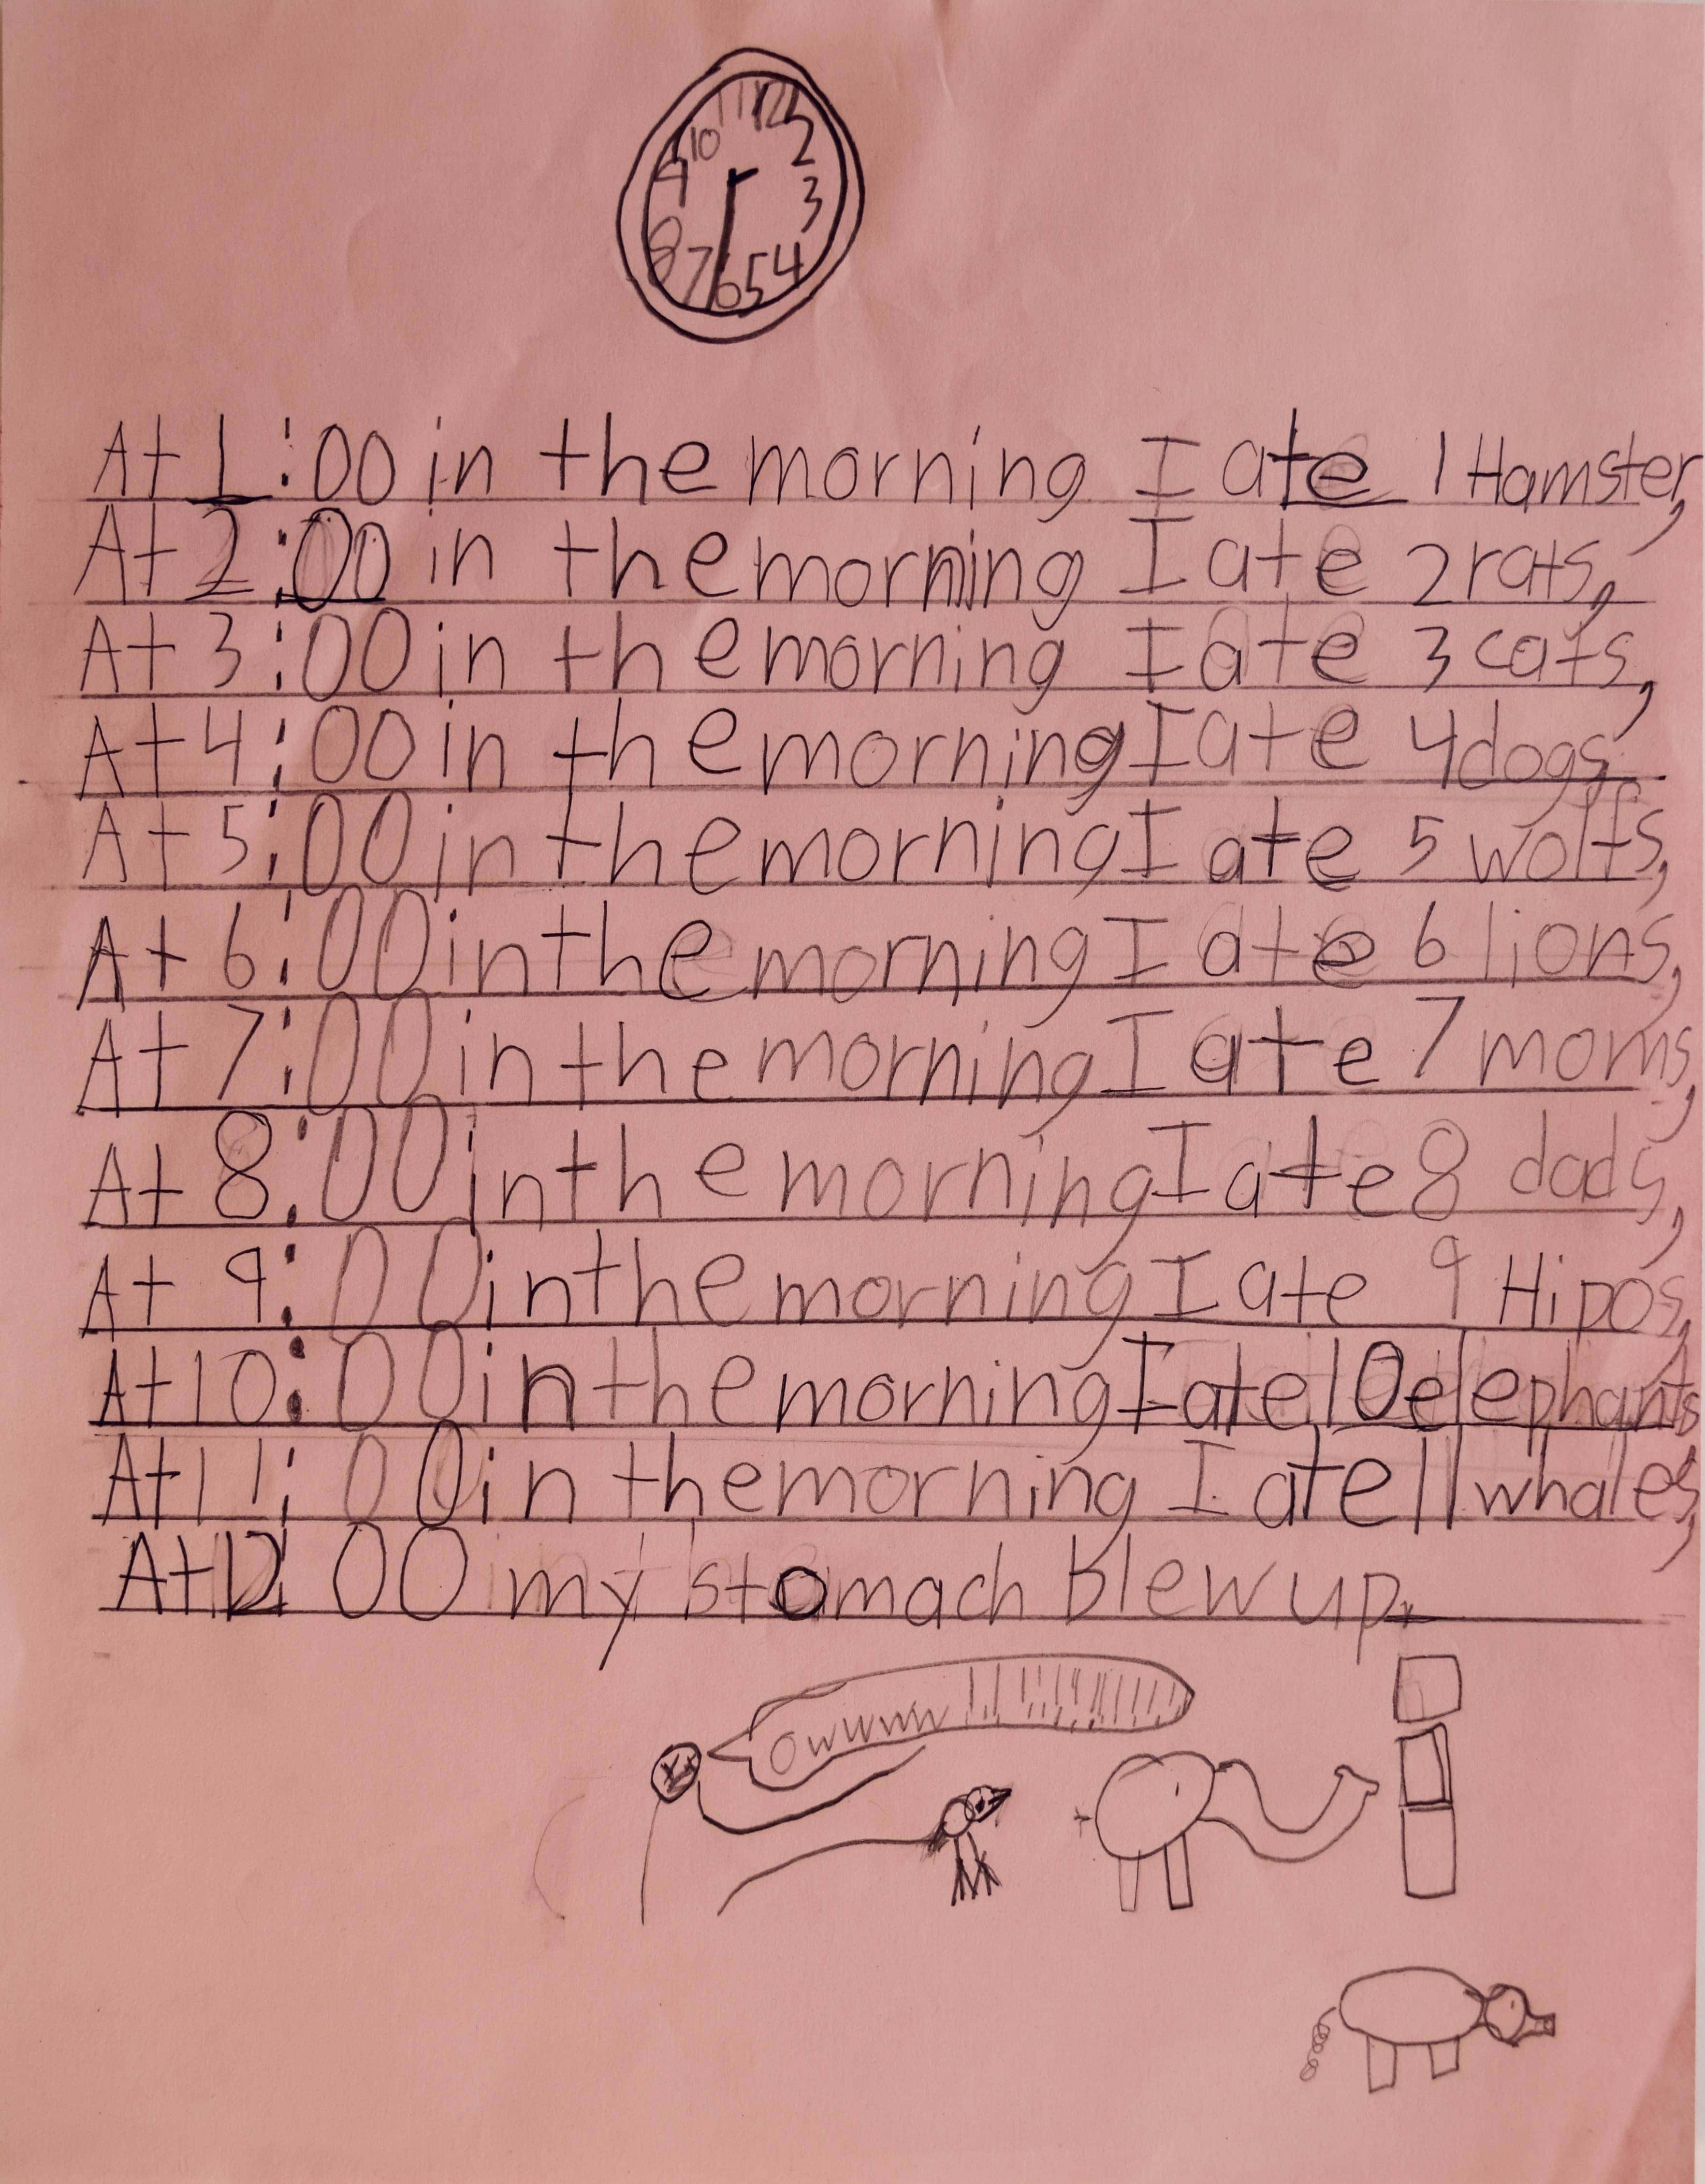 11 12
10 2
9 3
8 4
7 6 5
At 1:00 in the morning I ate 1 Hamster,
At 2:00 in the morning I ate 2 rats,
At 3:00 in the morning I ate 3 cats,
At 4:00 in the morning I ate 4 dogs,
At 5:00 in the morning I ate 5 wolfs,
At 6:00 in the morning I ate 6 lions,
At 7:00 in the morning I ate 7 moms,
At 8:00 in the morning I ate 8 dads,
At 9:00 in the morning I ate 9 Hipos,
At 10:00 in the morning I ate 10 elephants,
At 11:00 in the morning I ate 11 whales,
At 12:00 my stomach blew up.
Owwww